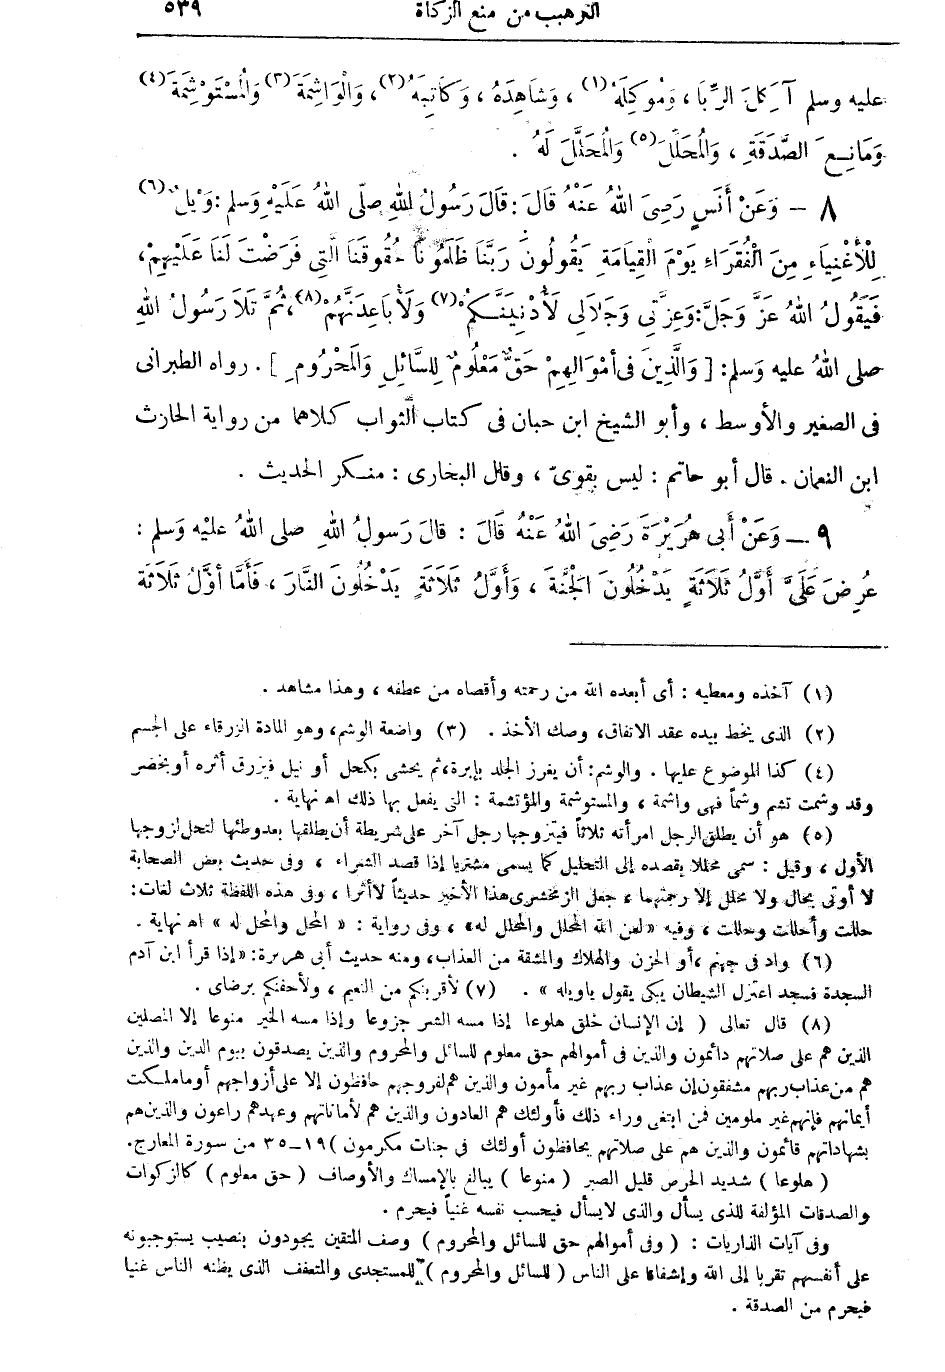 الترهيب من منع الزكاة ٥٣٩
عليه وسلم آكِلَ الرِّبَا ، وَمُوكِلَهُ (١) ، وَشَاهِدَهُ ، وَكَاتِبَهُ (٢) ، وَالْوَاشِمَةَ (٣) وَالْمُسْتَوْشِمَةَ (٤)
وَمَانِعَ الصَّدَقَةِ ، وَالْمُحَلِّلَ (٥) وَالْمُحَلَّلَ لَهُ .
٨ — وَعَنْ أَنَسٍ رَضِىَ اللهُ عَنْهُ قَالَ : قَالَ رَسُولُ اللهِ صلّى اللهُ عَلَيْهِ وَسلم : وَيْلٌ (٦)
لِلْأَغْنِيَاءِ مِنَ الْفُقَرَاءِ يَوْمَ القِيَامَةِ يَقُولُونَ رَبَّنَا ظَلَمُونَا حُقُوقَنَا الَّتِى فَرَضْتَ لَنَا عَلَيْهِمْ ،
فَيَقُولُ اللهُ عَزَّ وَجَلَّ : وَعِزَّتِى وَجَلاَلِى لَأُدْنِيَنَّكُمْ (٧) وَلَأُبَاعِدَنَّهُمْ (٨) ، ثُمَّ تَلاَ رَسُولُ اللهِ
صلى اللهُ عليه وَسلم : [ وَالَّذِينَ فِى أَمْوَالِهِمْ حَقٌّ مَعْلُومٌ لِلسَّائِلِ وَالْمَحْرُومِ ] . رواه الطبرانى
فى الصغير والأوسط ، وأبو الشيخ ابن حبان فى كتاب الثواب كلاهما من رواية الحارث
ابن النعمان . قال أبو حاتم : ليس بقوىّ ، وقال البخارى : منكر الحديث .
٩ — وَعَنْ أَبِى هُرَيْرَةَ رَضِىَ اللهُ عَنْهُ قَالَ : قالَ رَسولُ اللهِ صلى اللهُ عليْه وَسلم :
عُرِضَ عَلَىَّ أَوَّلُ ثَلَاثَةٍ يَدْخُلُونَ الْجَنَّةَ ، وَأَوَّلُ ثَلَاثَةٍ يَدْخُلُونَ النَّارَ ، فَأَمَّا أَوَّلُ ثَلَاثَةٍ
(١) آخذه ومعطيه : أى أبعده الله من رحمته وأقصاه من عطفه ، وهذا مشاهد .
(٢) الذى يخط بيده عقد الاتفاق، وصك الأخذ . (٣) واضعة الوشم، وهو المادة الزرقاء على الجسم
(٤) كذا الموضوع عليها . والوشم: أن يغرز الجلد بإبرة، ثم يحشى بكحل أو نيل فيزرق أثره أو يخضر
وقد وشمت تشم وشماً فهى واشمة ، والمستوشمة والمؤتشمة : التى يفعل بها ذلك اه نهاية .
(٥) هو أن يطلق الرجل امرأته ثلاثاً فيتزوجها رجل آخر على شريطة أن يطلقها بعد وطئها لتحل لزوجها
الأول ، وقيل : سمى محللا بقصده إلى التحليل كما يسمى مشتريا إذا قصد الشراء ، وفى حديث بعض الصحابة
لا أوتى بحال ولا محلل إلا رجمتهما ، جعل الزمخشرى هذا الأخير حديثاً لا أثرا ، وفى هذه اللفظة ثلاث لغات :
حللت وأحللت وحللت ، وفيه «لعن الله المحلل والمحلل له» ، وفى رواية : « المحل والمحل له » اه نهاية .
(٦) واد فى جهنم ، أو الحزن والهلاك والمشقة من العذاب، ومنه حديث أبى هريرة: «إذا قرأ ابن آدم
السجدة فسجد اعتزل الشيطان يبكى يقول ياويله » . (٧) لأقربنكم من النعيم ، ولأحفنكم برضاى .
(٨) قال تعالى ( إن الإنسان خلق هلوعا إذا مسه الشر جزوعا وإذا مسه الخير منوعا إلا المصلين
الذين هم على صلاتهم دائمون والذين فى أموالهم حق معلوم للسائل والمحروم والذين يصدقون بيوم الدين والذين
هم من عذاب ربهم مشفقون إن عذاب ربهم غير مأمون والذين هم لفروجهم حافظون إلا على أزواجهم أو ما ملكت
أيمانهم فإنهم غير ملومين فمن ابتغى وراء ذلك فأولئك هم العادون والذين هم لأماناتهم وعهدهم راعون والذين هم
بشهاداتهم قائمون والذين هم على صلاتهم يحافظون أولئك فى جنات مكرمون ) ١٩ — ٣٥ من سورة المعارج.
( هلوعا ) شديد الحرص قليل الصبر ( منوعا ) يبالغ بالإمساك والأوصاف ( حق معلوم ) كالزكوات
والصدقات المؤلفة للذى يسأل والذى لا يسأل فيحسب نفسه غنياً فيحرم .
وفى آيات الذاريات : ( وفى أموالهم حق للسائل والمحروم ) وصف المتقين يجودون بنصيب يستوجبونه
على أنفسهم تقربا إلى الله وإشفاقا على الناس ( للسائل والمحروم ) للمستجدى والمتعفف الذى يظنه الناس غنيا
فيحرم من الصدقة .